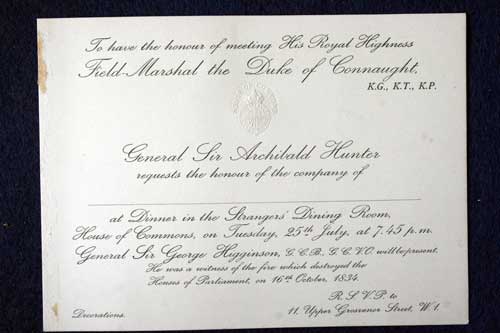 To have the honour of meeting His Royal Highness
Field-Marshal the Duke of Connaught,
K.G., K.T., K.P.
General Sir Archibald Hunter
requests the honour of the company of
at Dinner in the Strangers' Dining Room,
House of Commons, on Tuesday, 25th July, at 7.45 p.m.
General Sir George Higginson, G.C.B., G.C.V.O. will be present.
He was a witness of the fire which destroyed the
Houses of Parliament, on 16th October, 1834.
R.S.V.P. to
Decorations. 11. Upper Grosvenor Street, W.1.